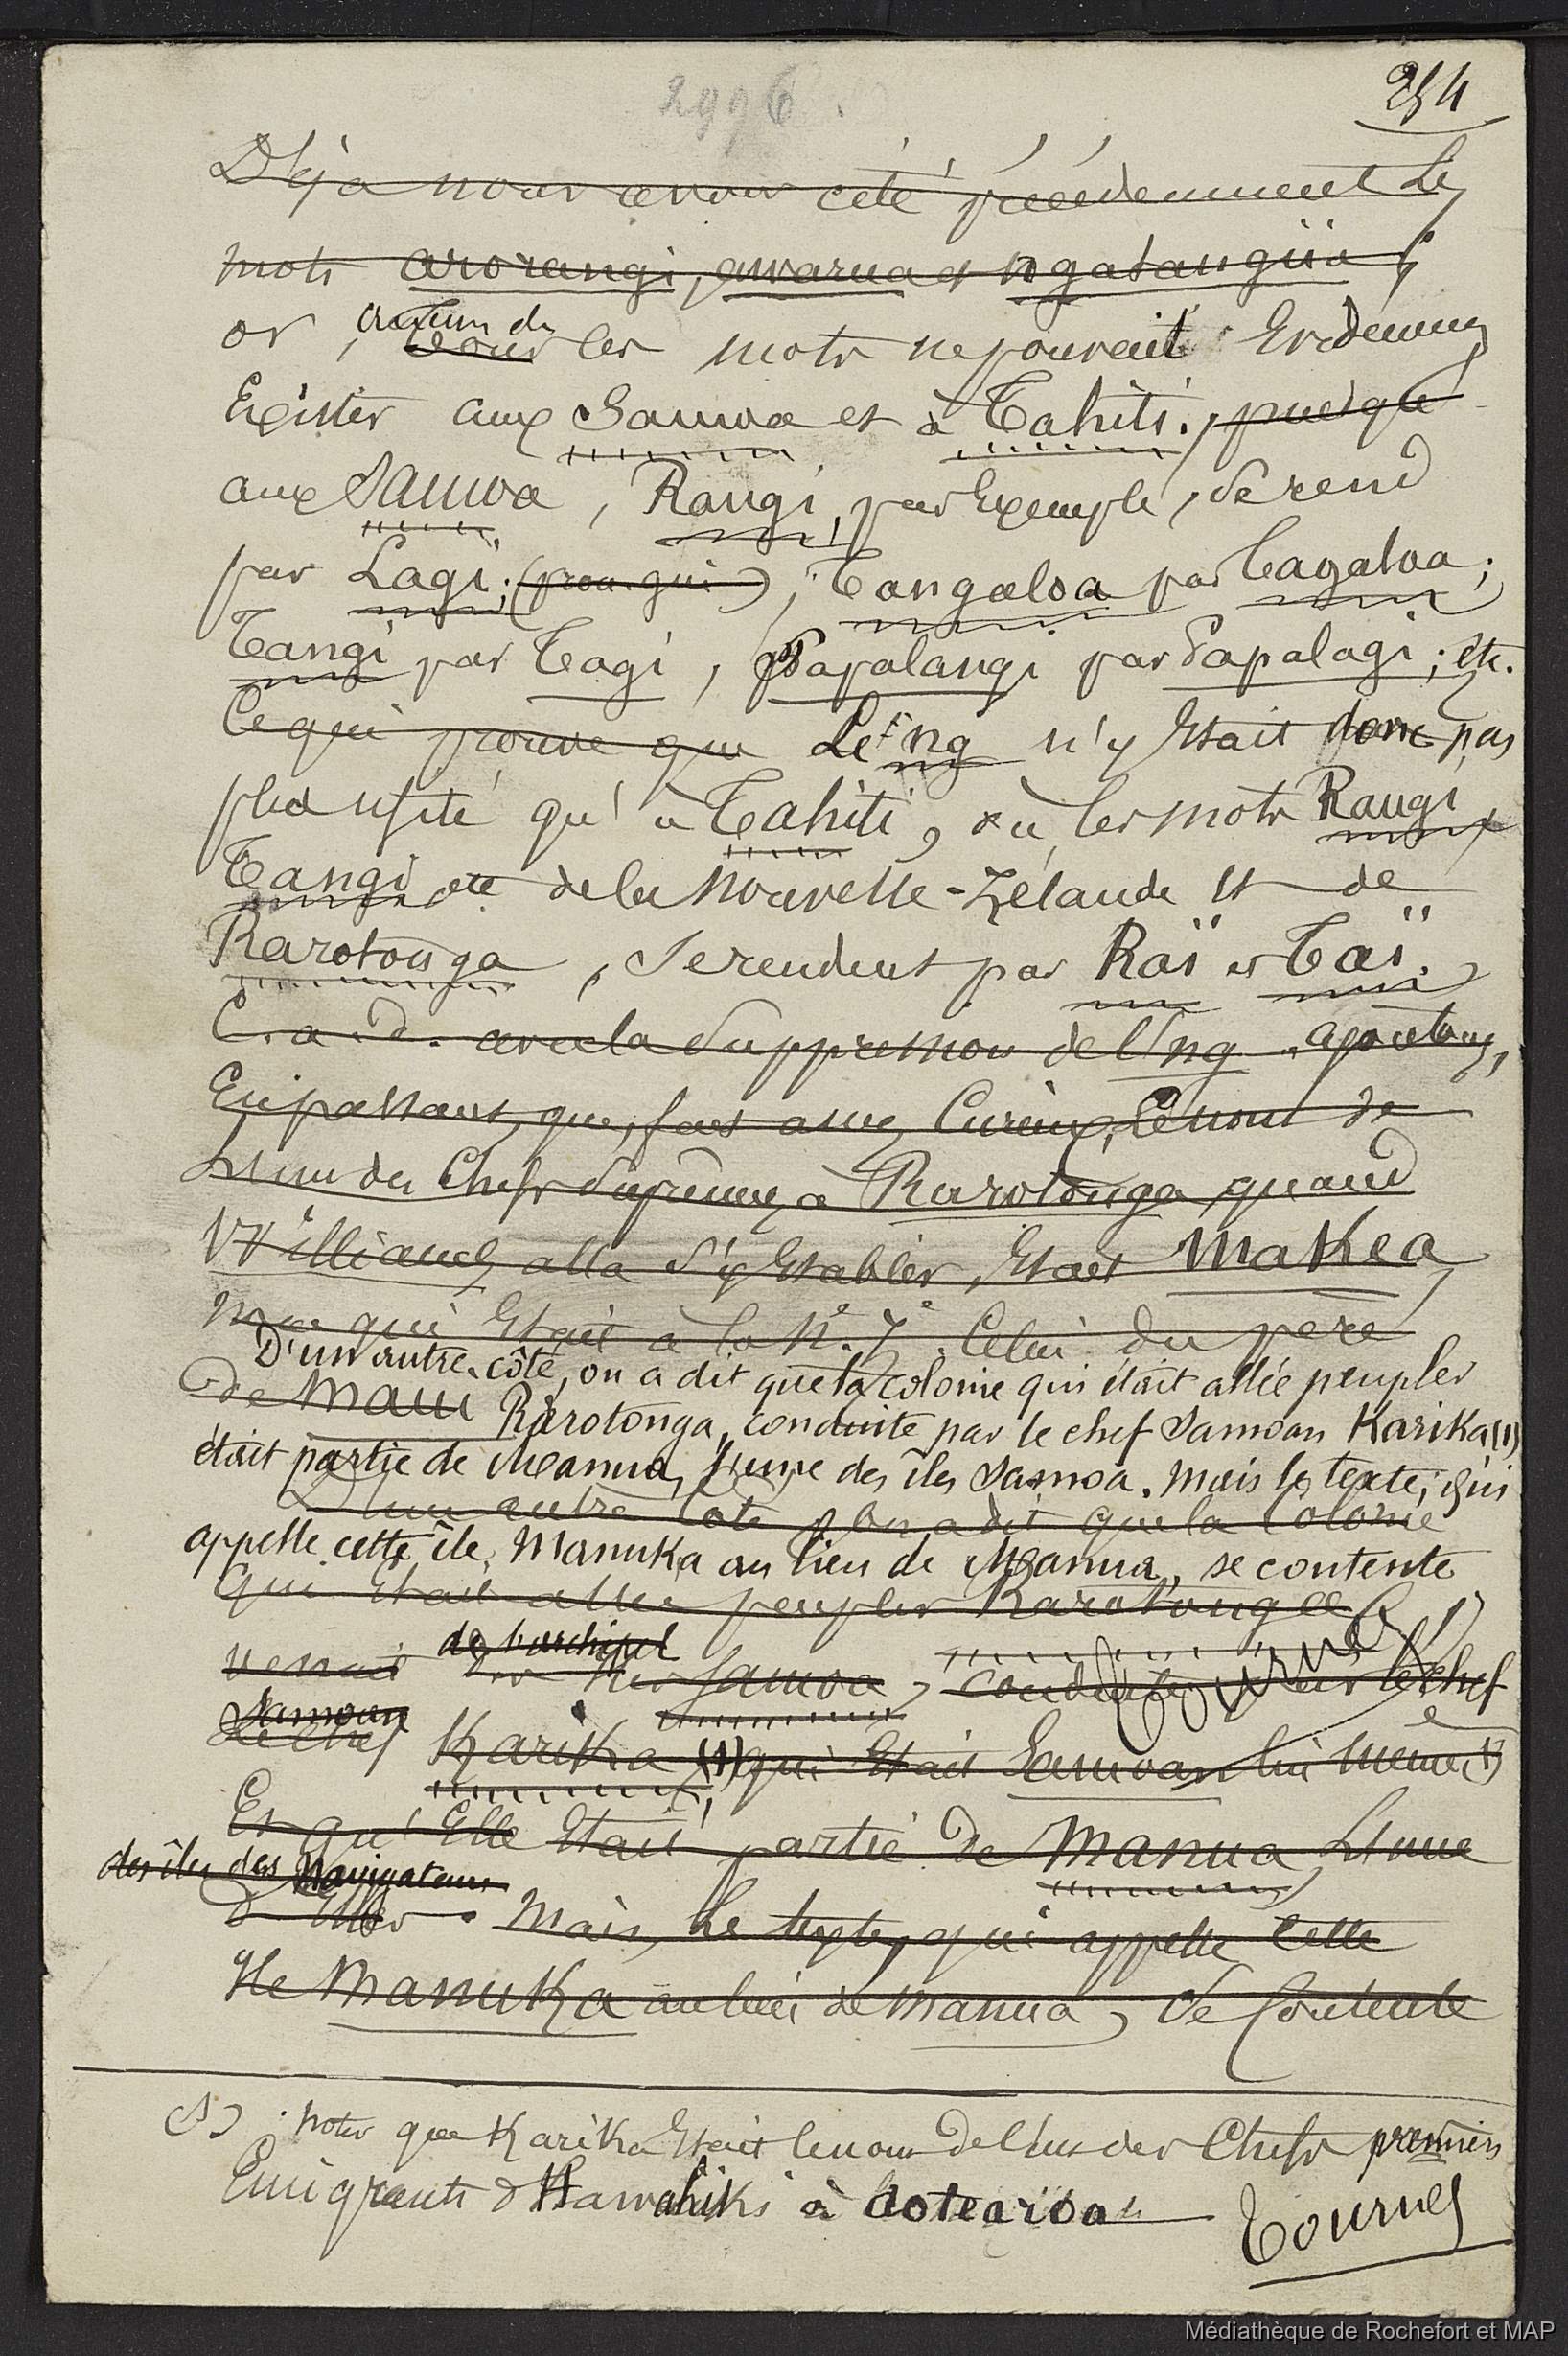 2996
254
Déjà nous avons cité précédemment les
mots arorangi, avarua et ngatangiia ;
or, aucun de
tous les mots ne pouvait Evidemment
Exister aux Samoa et à Tahiti. puisque
aux Samoa, Rangi, par Exemple, se rend
par Lagi ; (prou. gui), Tangaloa par Tagaloa ;
Tangi par Tagi, Papalangi par Papalagi ; etc.
Ce qui prouve que Le ng n'y Etait donc pas
plus usité qu'à Tahiti, où les mots Rangi,
Tangi, etc de la Nouvelle-Zélande et de
Rarotonga, se rendent par Raï et Taï.
C. a. d. avec la suppression de l'ng. ajoutons,
En passant, que, fait assez Curieux, le nom de
L'un des Chefs suprêmes à Rarotonga quand
Williams alla s'y Etablir, Etait Makea,
qui Etait à la Nle Zde Celui du père
D'un autre côté, on a dit que la colonie qui était allée peupler
de Maui
Rarotonga, conduite par le chef Samoan Karika (1)
était partie de Manua, l'une des îles Samoa. Mais le texte, qui
D'un autre Côté, on a dit que la Colonie
appelle cette île, Manuka au lieu de Manua, se contente
qui Etait allée peupler Rarotonga
Tournez
venait de l'archipel
des îles Samoa, conduite par le chef
Samoan
Le Chef Karika (1) qui Etait Samoan lui même (1)
Et qu'Elle Etait partie de Manua L'une
des îles des Navigateurs
d'Elles. Mais, Le texte, qui appelle Cette
Ile Manuka au lieu de Manua, se Contente
(1) Noter que Karika Etait le nom de l'un des Chefs premiers
Emigrants d'Hawahiki à Aotearoa
Tournez
Médiathèque de Rochefort et MAP